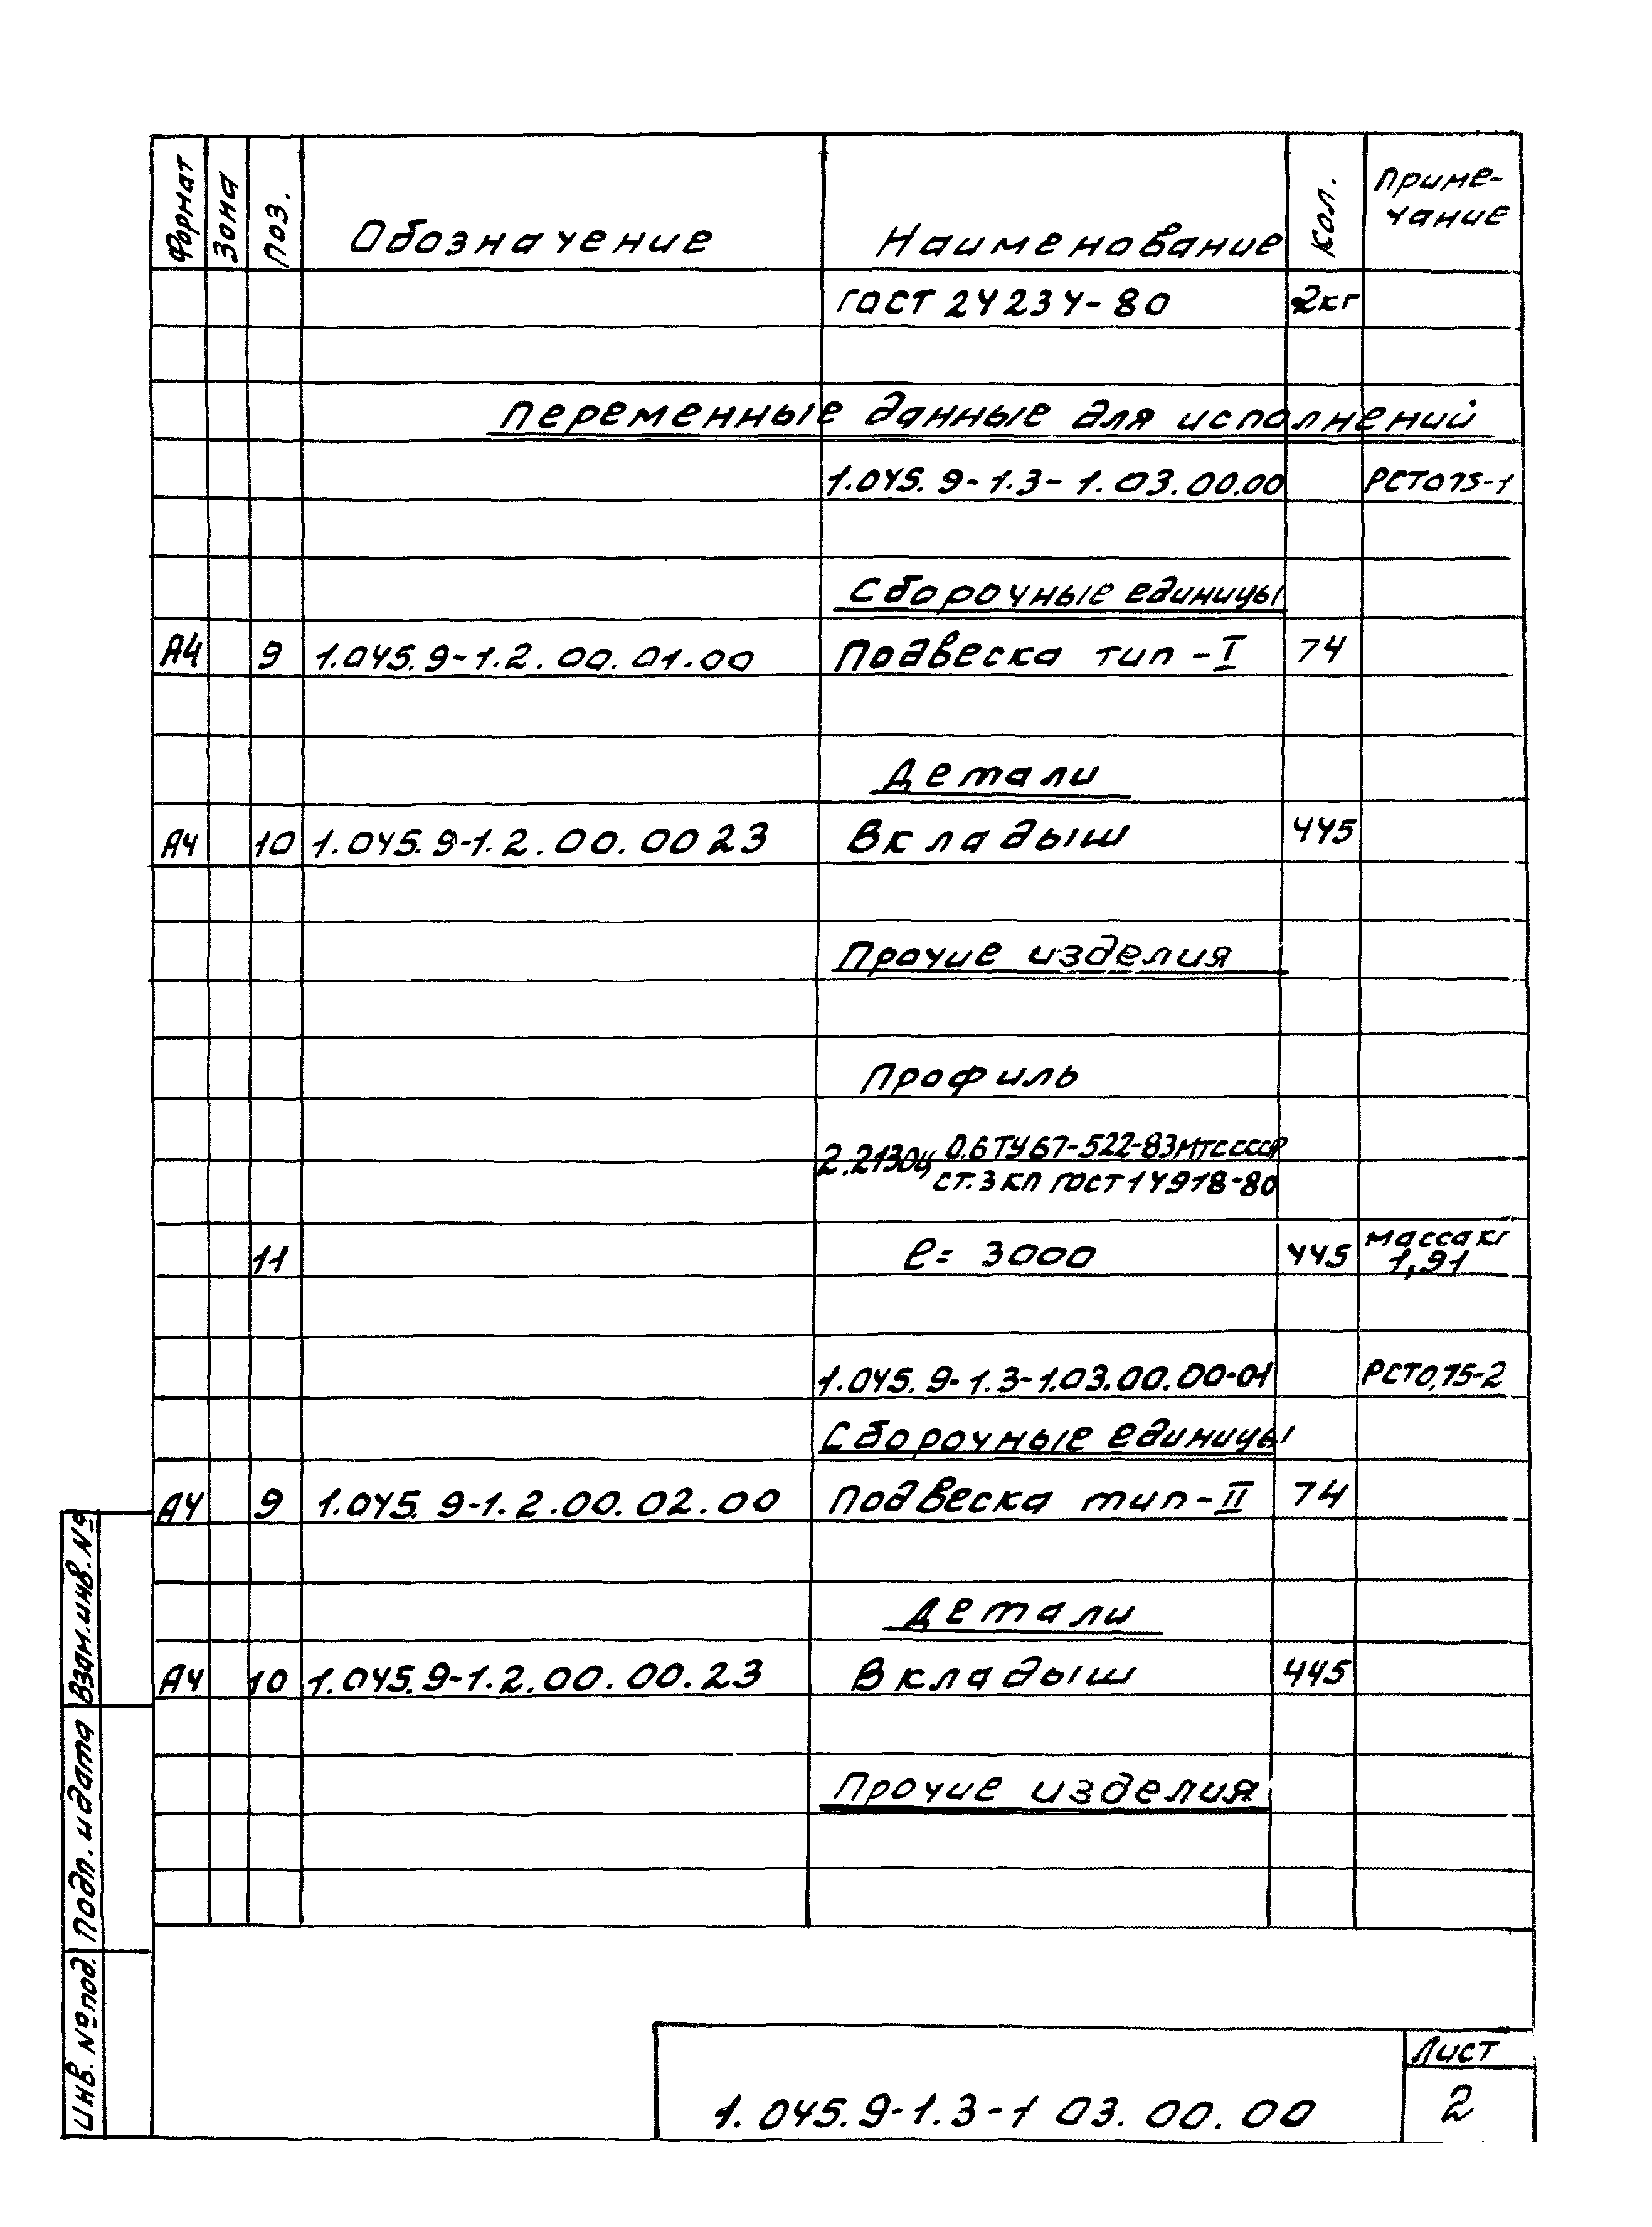 Формат Зона Поз. Обозначение Наименование Кол. Приме-
чание
ГОСТ 24234-80 2кг
Переменные данные для исполнений
1.045.9-1.3-1.03.00.00 РСТ075-1
Сборочные единицы
А4 9 1.045.9-1.2.00.01.00 Подвеска тип-I 74
Детали
А4 10 1.045.9-1.2.00.0023 Вкладыш 445
Прочие изделия
Профиль
2.2130Ц 0.6 ТУ67-522-83 МТС СССР
ст.3 кп ГОСТ 14918-80
11 ℓ= 3000 445 масса кг
1,91
1.045.9-1.3-1.03.00.00-01 РСТ0,75-2
Сборочные единицы
А4 9 1.045.9-1.2.00.02.00 Подвеска тип-II 74
Детали
А4 10 1.045.9-1.2.00.00.23 Вкладыш 445
Прочие изделия
Взам.инв.№
Подп. и дата
Инв. № под.
1.045.9-1.3-1 03.00.00
Лист
2